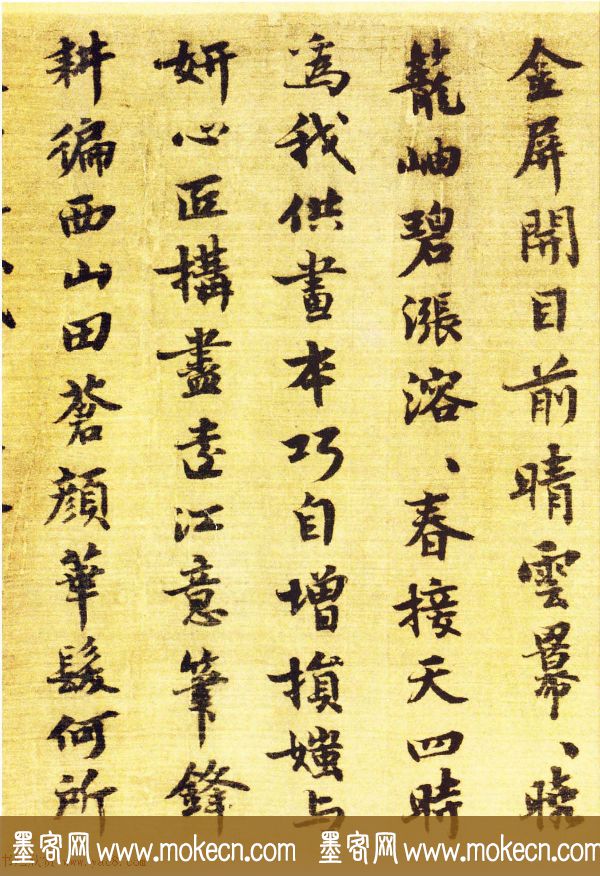 金屏開目前晴雲羃、曉
蘢岫碧漲溶、春接天四時
為我供畫本巧自增損媸与
妍心匠構盡遠江意筆鋒
耕徧西山田蒼顏華髮何所
墨客网 www.mokecn.com 墨客网 www.mokecn.com